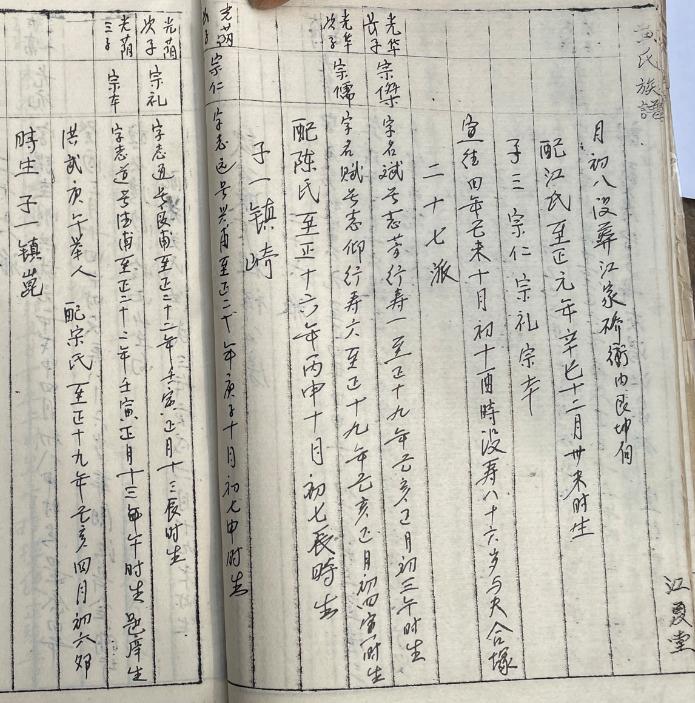 黄氏族譜
江夏堂
月初八没葬江家桥衝内艮坤向
配江氏至正元年辛巳十二月廿未时生
子三宗仁宗礼宗本
宣德四年己未十月初十酉時没寿八十六岁与夫合塚
二十七派
光华長子 宗傑 字名斌号志芳行寿一至正十九年己亥正月初三午时生
光华次子 宗儒 字名赋号志仰行寿六至正十九年己亥正月初四寅时生
配陈氏至正十六年丙申十月初七辰時生
子一镇崎
光荫 宗仁 字志远号兴甫至正二十年庚子十月初七申时生
光荫次子 宗礼 字志道号 甫至正二十二年壬寅正月十三辰时生
光荫三子 宗本 字志道号 甫至正二十二年壬寅正月十三 午时生 邑庠生
洪武庚午举人 配宗氏至正十九年己亥四月初六卯
時生 子一镇崑